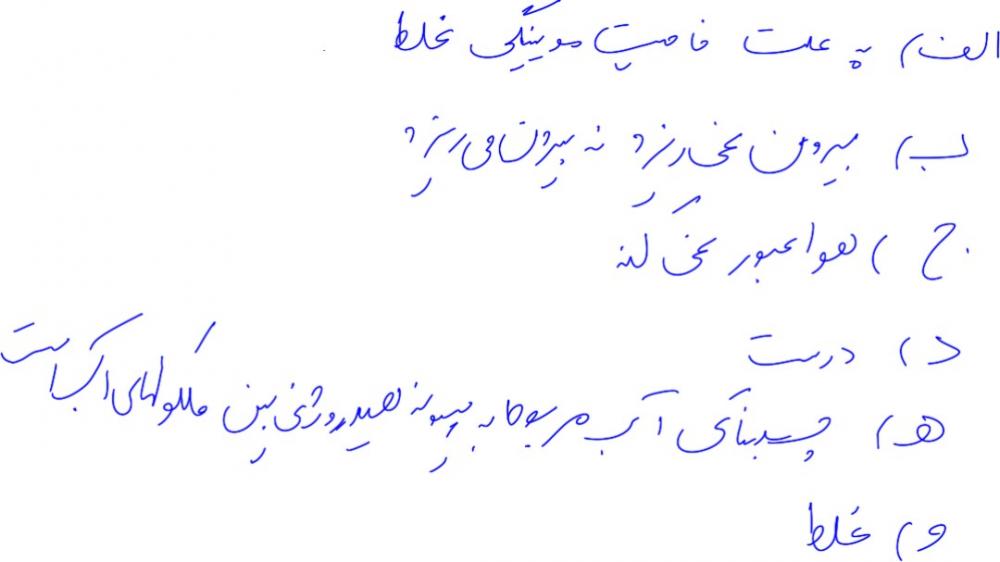 الف) به علت خاصیت مویینگی غلط
ب) بیرون نمی‌ریزد نه بیرون می‌ریزد
ج) هوا عبور نمی‌کند
د) درست
ه) چسبندگی آب مربوط به پیوند هیدروژنی بین ملکولهای آب است
و) غلط